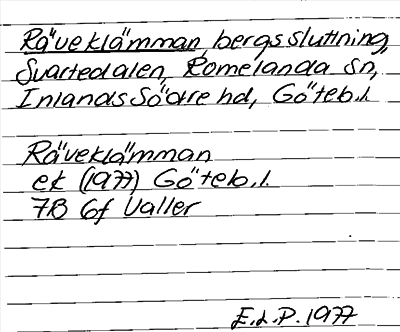 Räveklämman, bergssluttning,
Svartedalen, Romelanda sn,
Inlands Södre hd, Göteb.l.
Räveklämman
ek (1977) Göteb.l.
7B 6f Valler
E.L.P. 1977